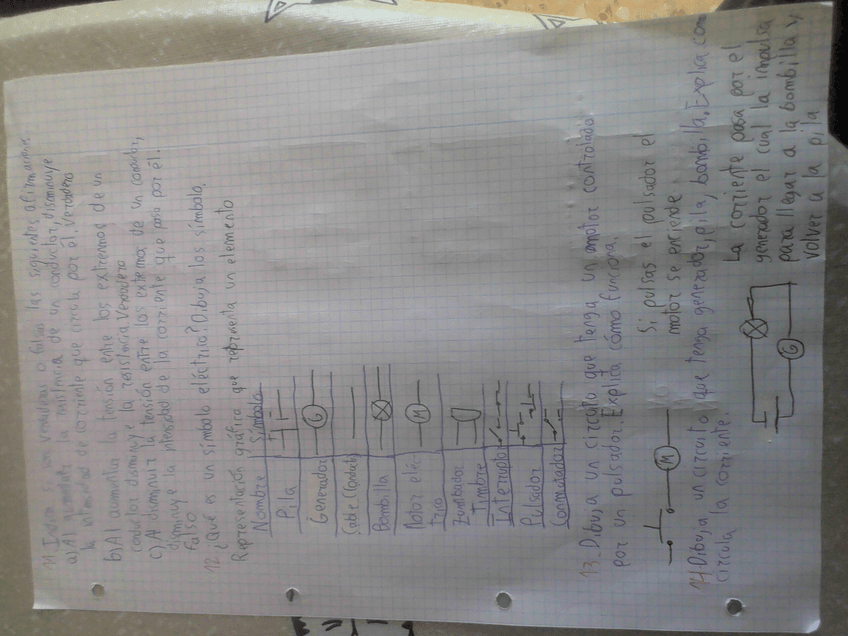 11 Indica si son verdaderas o falsas las siguientes afirmaciones
a) Al aumentar la resistencia de un conductor, disminuye
la intensidad de corriente que circula por él. Verdadero
b) Al aumentar la tensión entre los extremos de un
conductor disminuye la resistencia Verdadero
c) Al disminuir la tensión entre los extremos de un conductor,
disminuye la intensidad de la corriente que pasa por él.
Falso
12 ¿Qué es un símbolo eléctrico? Dibuja los símbolo.
Representación gráfica que representa un elemento
Nombre Símbolo
Pila
Generador G
Cable (Conduct)
Bombilla
Motor eléc M
trico
Zumbador
Timbre
Interruptor
Pulsador
Conmutador
13_Dibuja un circuito que tenga un motor controlado
por un pulsador. Explica cómo funciona.
M
Si pulsas el pulsador el
motor se enciende
14 Dibuja un circuito que tenga generador, pila, bombilla. Explica como
circula la corriente.
G
La corriente pasa por el
generador el cual la impulsa
para llegar a la bombilla y
volver a la pila